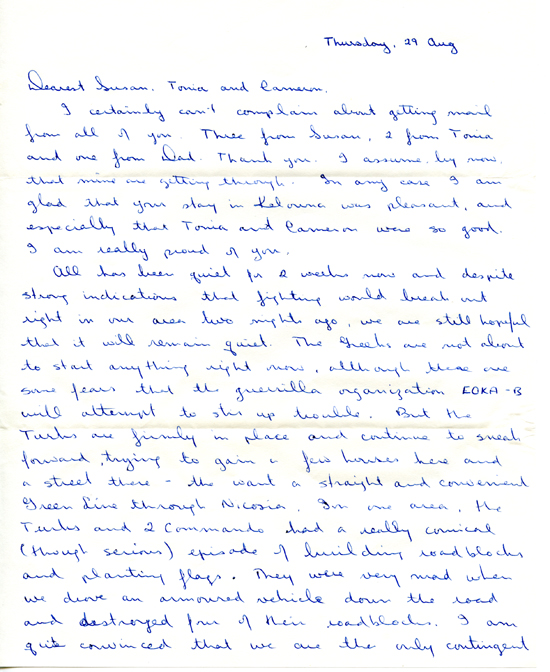 Thursday, 29 Aug
Dearest Susan, Tonia and Cameron,
I certainly can't complain about getting mail
from all of you. Three from Susan, 2 from Tonia
and one from Dad. Thank you. I assume, by now,
that mine are getting through. In any case I am
glad that your stay in Kelowna was pleasant, and
especially that Tonia and Cameron were so good.
I am really proud of you.
All has been quiet for 2 weeks now and despite
strong indications that fighting would break out
right in our area two nights ago, we are still hopeful
that it will remain quiet. The Greeks are not about
to start anything right now, although there are
some fears that the guerrilla organization EOKA-B
will attempt to stir up trouble. But the
Turks are firmly in place and continue to sneak
forward, trying to gain a few houses here and
a street there - the want a straight and convenient
Green Line through Nicosia. In one area, the
Turks and 2 Commando had a really comical
(though serious) episode of building roadblocks
and planting flags. They were very mad when
we drove an armoured vehicle down the road
and destroyed four of their roadblocks. I am
quite convinced that we are the only contingent